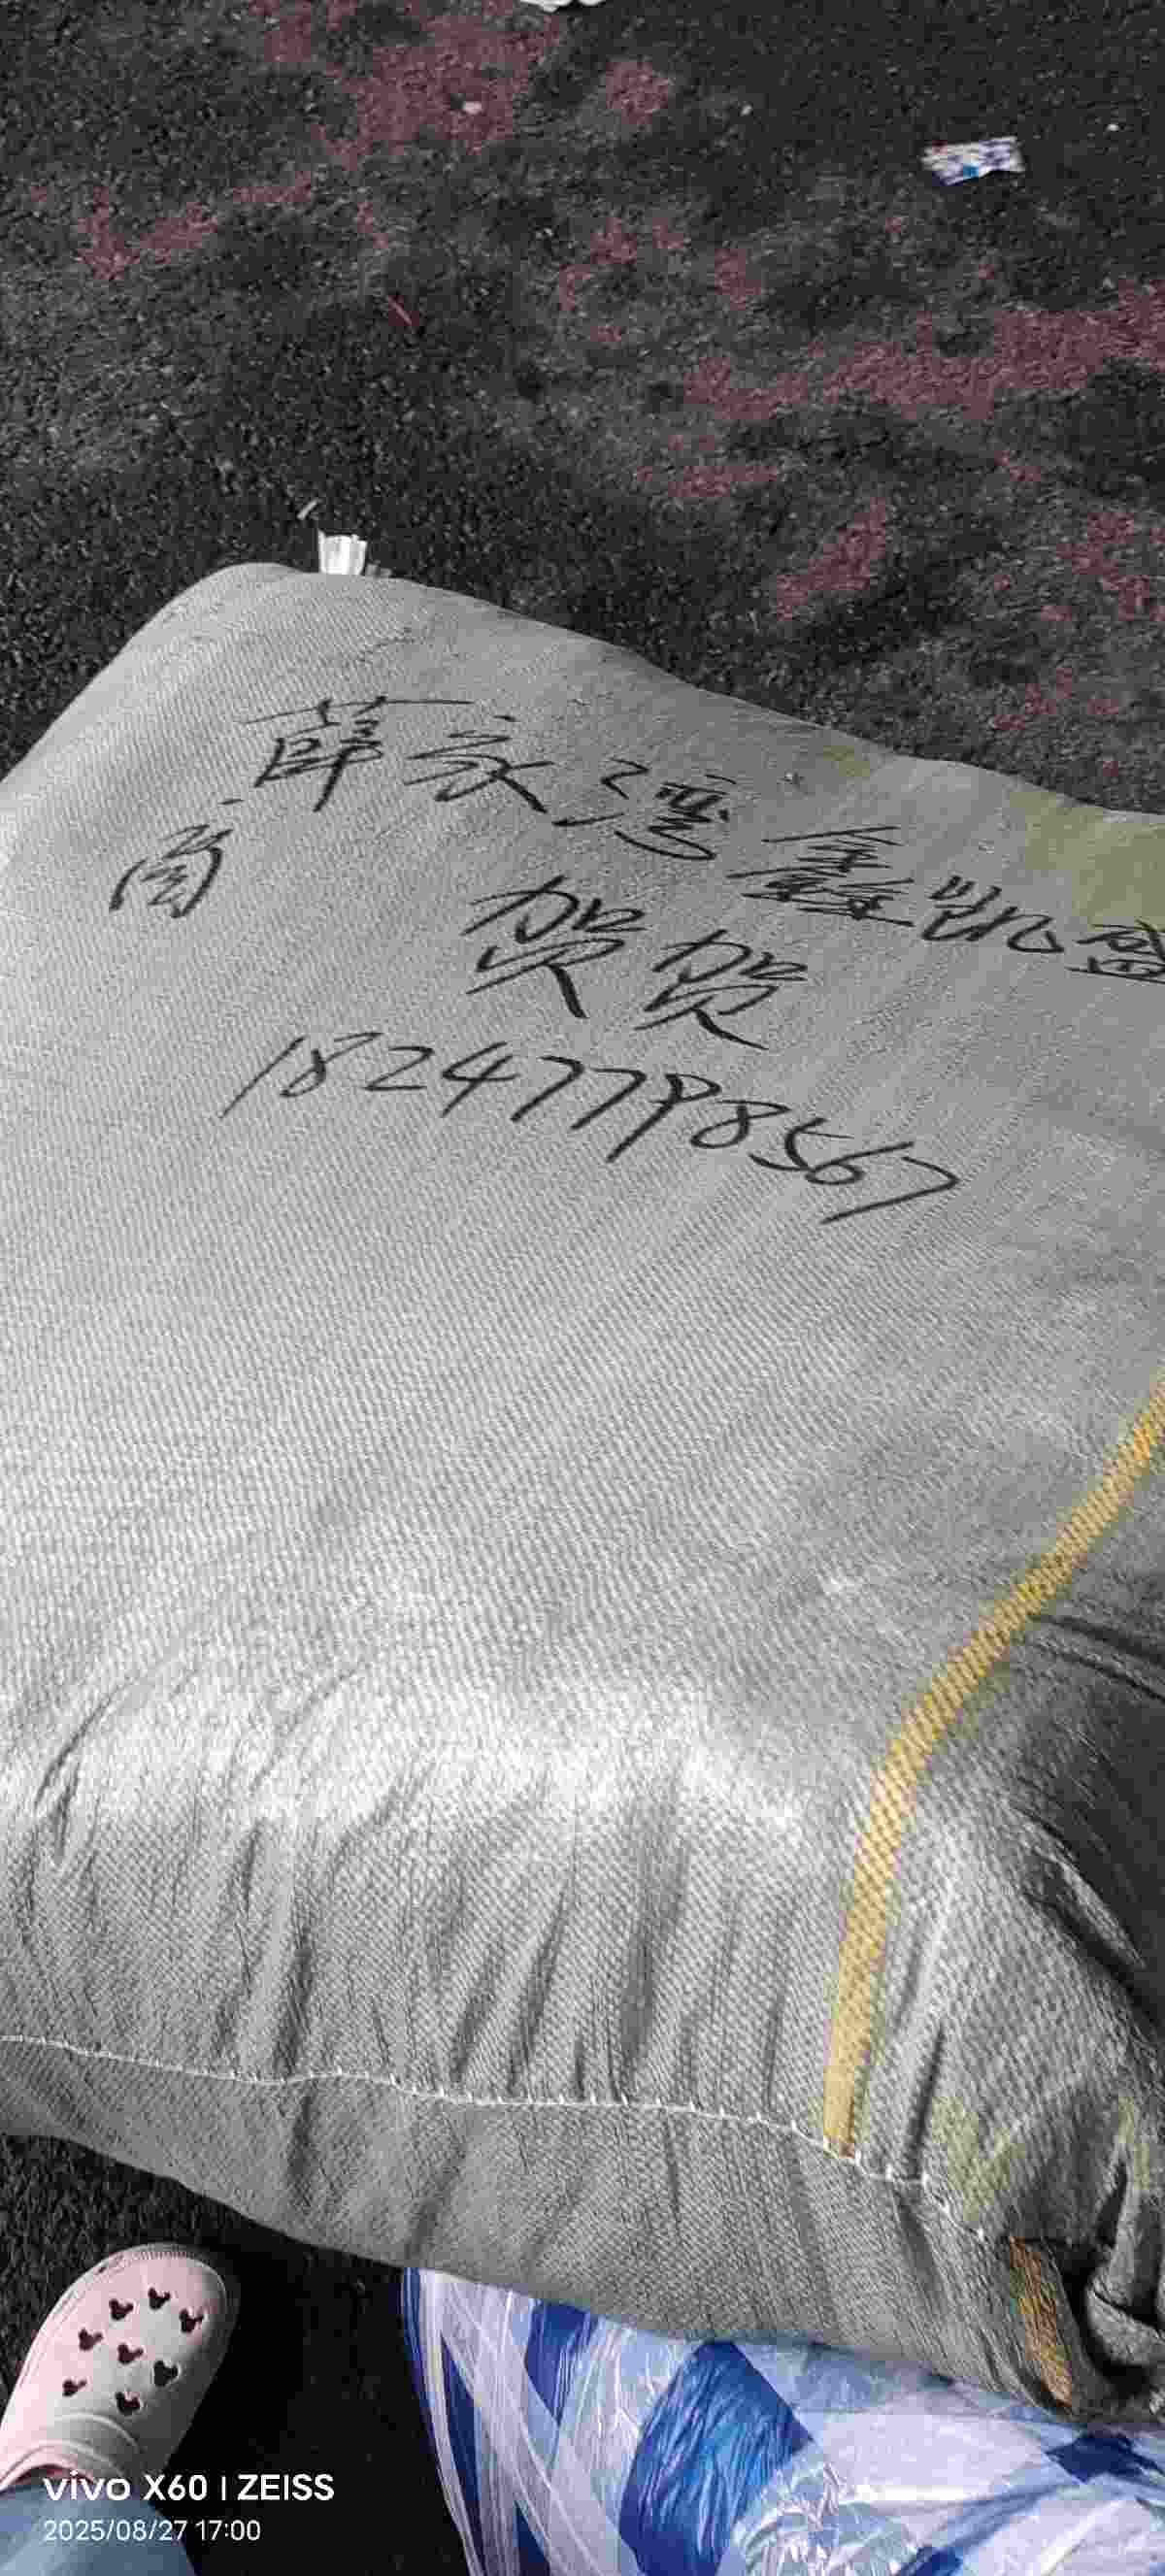 薛家湾鑫凯盛
商
贺贺
18247798567
vivo X60 | ZEISS
2025/08/27 17:00